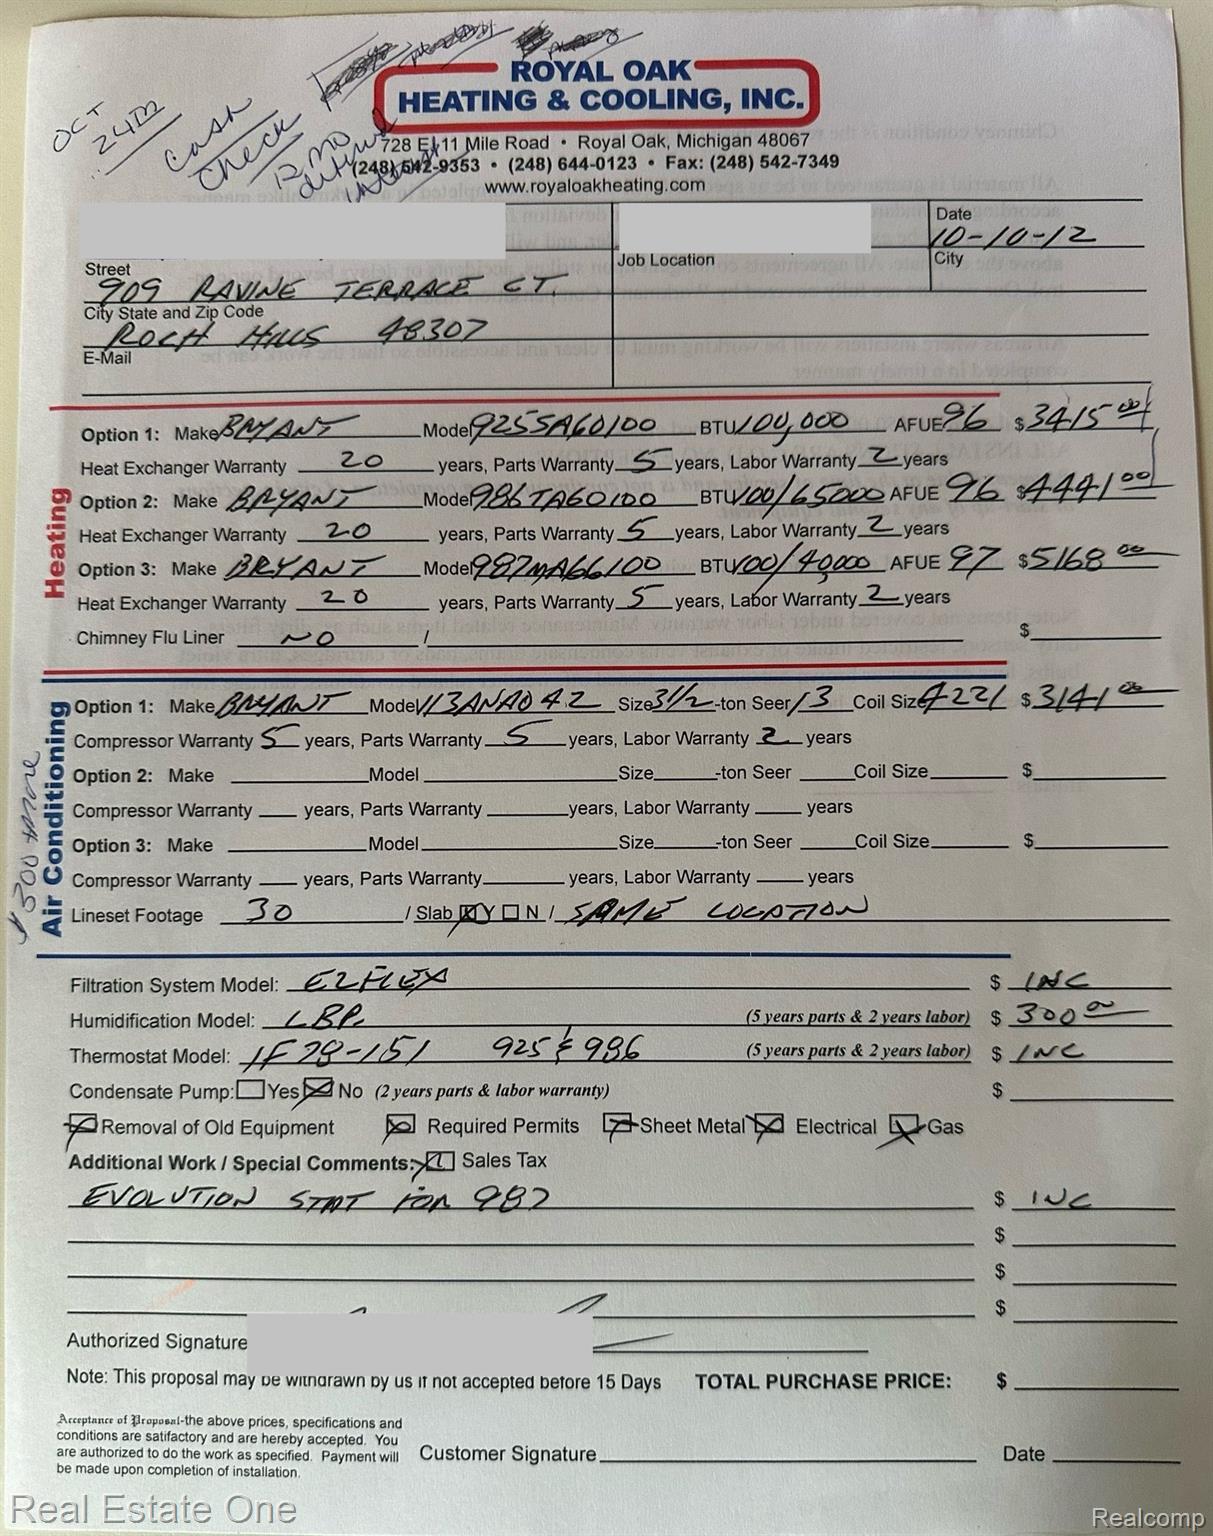 OCT
24TH
Cash
check
12 mo
interest
ROYAL OAK
HEATING & COOLING, INC.
728 E. 11 Mile Road • Royal Oak, Michigan 48067
(248) 542-9353 • (248) 644-0123 • Fax: (248) 542-7349
www.royaloakheating.com
Date
10-10-12
Job Location
City
Street
909 RAVINE TERRACE CT.
City State and Zip Code
ROCH HILLS 48307
E-Mail
Heating
Option 1: Make BRYANT Model 925SA60100 BTU 100,000 AFUE 96 $ 3415 00
Heat Exchanger Warranty 20 years, Parts Warranty 5 years, Labor Warranty 2 years
Option 2: Make BRYANT Model 986TA60100 BTU 100/65000 AFUE 96 $ 4441 00
Heat Exchanger Warranty 20 years, Parts Warranty 5 years, Labor Warranty 2 years
Option 3: Make BRYANT Model 987MA66100 BTU 100/40,000 AFUE 97 $ 5168 00
Heat Exchanger Warranty 20 years, Parts Warranty 5 years, Labor Warranty 2 years
Chimney Flu Liner NO / $
Air Conditioning
$300 more
Option 1: Make BRYANT Model 113ANA042 Size 3 1/2 -ton Seer 13 Coil Size 4221 $ 3141 00
Compressor Warranty 5 years, Parts Warranty 5 years, Labor Warranty 2 years
Option 2: Make Model Size -ton Seer Coil Size $
Compressor Warranty years, Parts Warranty years, Labor Warranty years
Option 3: Make Model Size -ton Seer Coil Size $
Compressor Warranty years, Parts Warranty years, Labor Warranty years
Lineset Footage 30 / Slab Y N / SAME LOCATION
Filtration System Model: EZFLEX $ INC
Humidification Model: LBP. (5 years parts & 2 years labor) $ 300 00
Thermostat Model: 1F78-151 925 & 986 (5 years parts & 2 years labor) $ INC
Condensate Pump: Yes No (2 years parts & labor warranty) $
Removal of Old Equipment Required Permits Sheet Metal Electrical Gas
Additional Work / Special Comments: Sales Tax
EVOLUTION STAT FOR 987 $ INC
$
$
$
Authorized Signature
Note: This proposal may be withdrawn by us if not accepted before 15 Days TOTAL PURCHASE PRICE: $
Acceptance of Proposal-the above prices, specifications and
conditions are satifactory and are hereby accepted. You
are authorized to do the work as specified. Payment will
be made upon completion of installation.
Customer Signature Date
Real Estate One
Realcomp